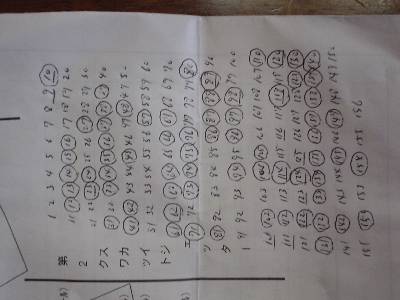 第
2
クス
ワカ
ツイ
トシ
ッ
タ
1
1 2 3 4 5 6 7 8 9 10
11 12 13 14 15 16 17 18 19 20
21 22 23 24 25 26 27 28 29 30
31 32 33 34 35 36 37 38 39 40
41 42 43 44 45 46 47 48 49 50
51 52 53 54 55 56 57 58 59 60
61 62 63 64 65 66 67 68 69 70
71 72 73 74 75 76 77 78 79 80
81 82 83 84 85 86 87 88 89 90
91 92 93 94 95 96 97 98 99 100
101 102 103 104 105 106 107 108 109 110
111 112 113 114 115 116 117 118 119 120
121 122 123 124 125 126 127 128 129 130
131 132 133 134 135 136 137 138 139 140
141 142 143 144 145 146 147 148 149 150
151 152 153 154 155 156